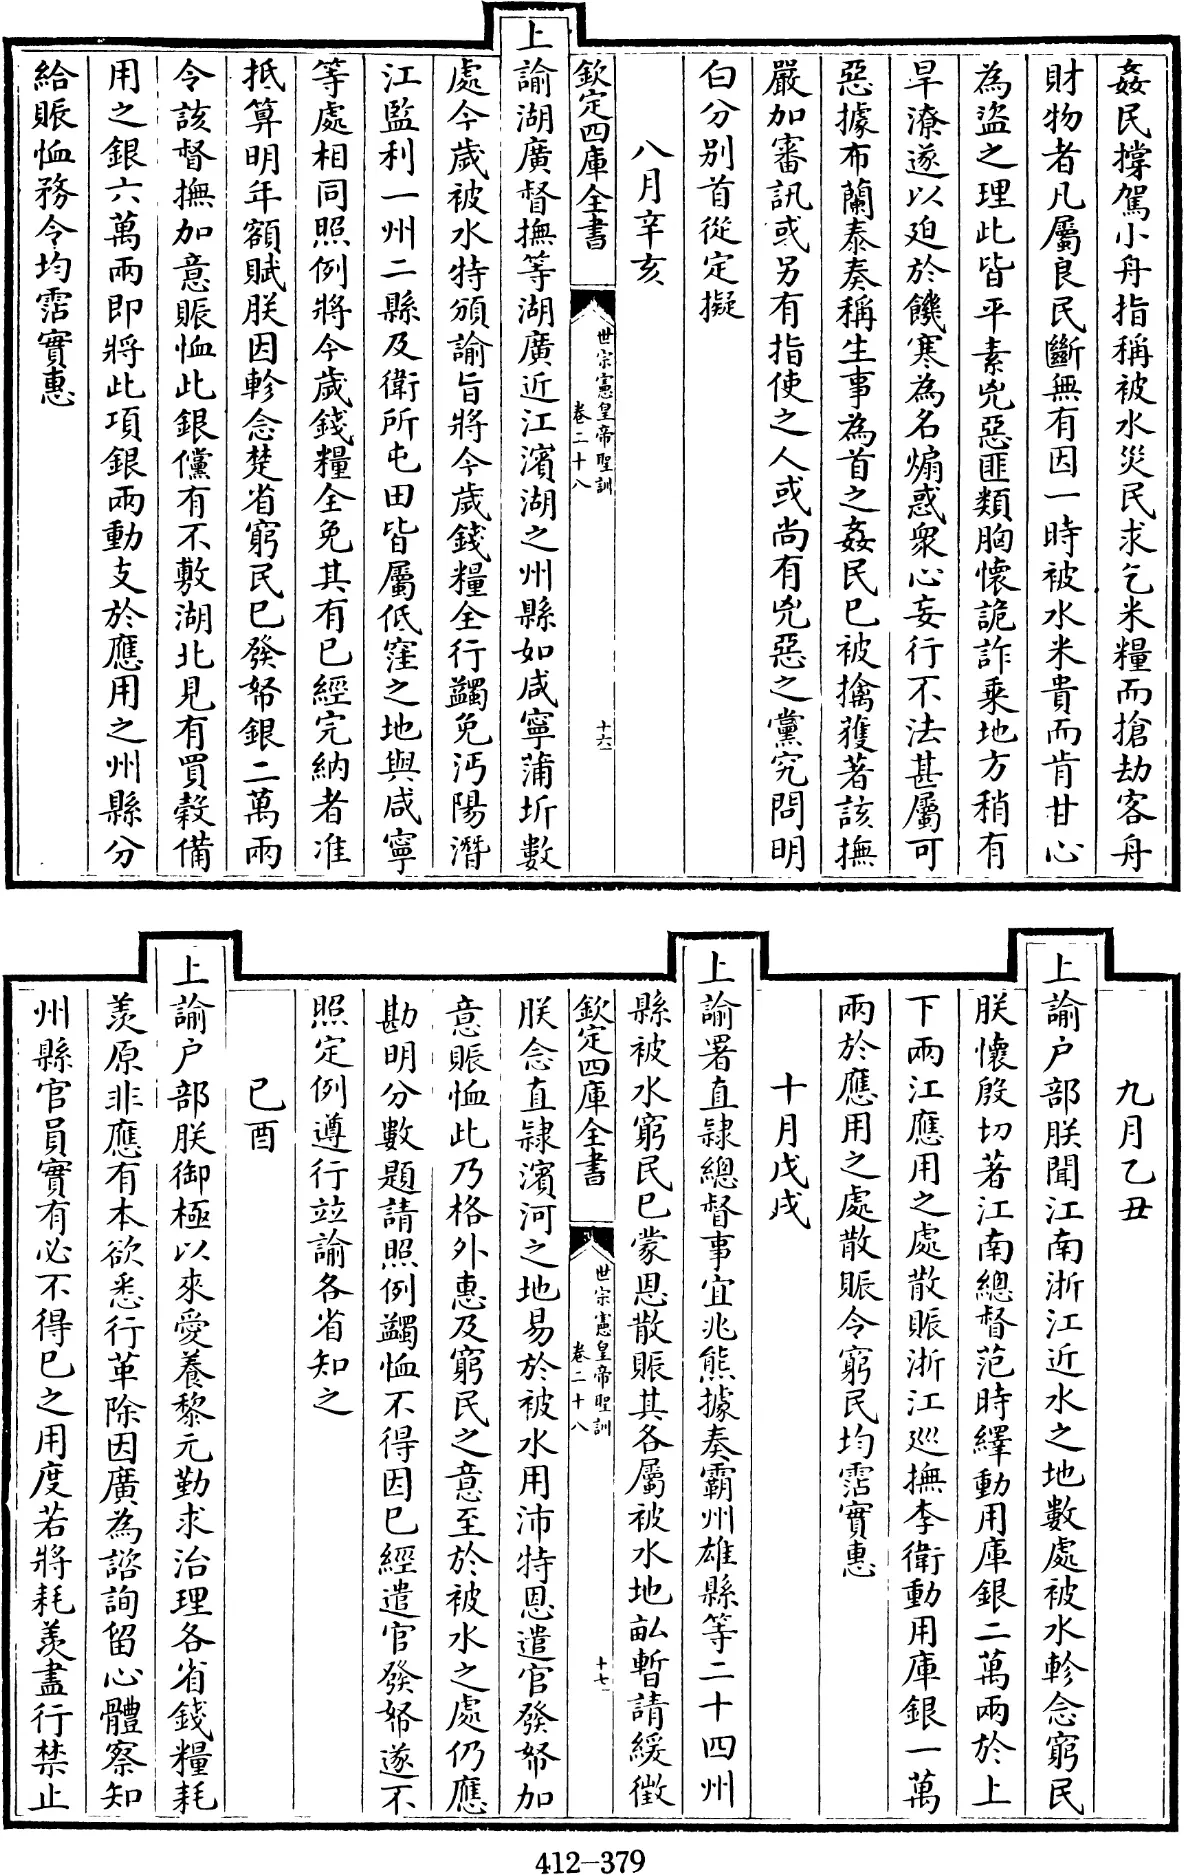 姦民撐駕小舟指稱被水災民求乞米糧而搶劫客舟
財物者凡屬良民斷無有因一時被水米貴而肯甘心
為盜之理此皆平素兇惡匪類胸懷詭詐乘地方稍有
旱潦遂以廹於饑寒為名煽惑衆心妄行不法甚屬可
惡據布蘭泰奏稱生事為首之姦民已被擒獲著該撫
嚴加審訊或另有指使之人或尚有兇惡之黨究問明
白分别首從定擬
八月辛亥
欽定四庫全書
世宗憲皇帝聖訓
卷二十八
十六
上諭湖廣督撫等湖廣近江濱湖之州縣如咸寧蒲圻數
處今歲被水特頒諭旨將今歲錢糧全行蠲免沔陽潛
江監利一州二縣及衛所屯田皆屬低窪之地與咸寧
等處相同照例將今歲錢糧全免其有已經完納者准
抵算明年額賦朕因軫念楚省窮民已發帑銀二萬兩
令該督撫加意賑恤此銀儻有不敷湖北見有買穀備
用之銀六萬兩即將此項銀兩動支於應用之州縣分
給賑恤務令均霑實惠
九月乙丑
上諭户部朕聞江南浙江近水之地數處被水軫念窮民
朕懷殷切著江南總督范時繹動用庫銀二萬兩於上
下兩江應用之處散賑浙江巡撫李衛動用庫銀一萬
兩於應用之處散賑令窮民均霑實惠
十月戊戌
上諭署直隸總督事宜兆熊據奏霸州雄縣等二十四州
縣被水窮民已蒙恩散賑其各屬被水地畝暫請緩徵
欽定四庫全書
世宗憲皇帝聖訓
卷二十八
十七
朕念直隸濱河之地易於被水用沛特恩遣官發帑加
意賑恤此乃格外惠及窮民之意至於被水之處仍應
勘明分數題請照例蠲恤不得因已經遣官發帑遂不
照定例遵行竝諭各省知之
已酉
上諭户部朕御極以來愛養黎元勤求治理各省錢糧耗
羨原非應有本欲悉行革除因廣為諮詢留心體察知
州縣官員實有必不得已之用度若將耗羨盡行禁止
412-379